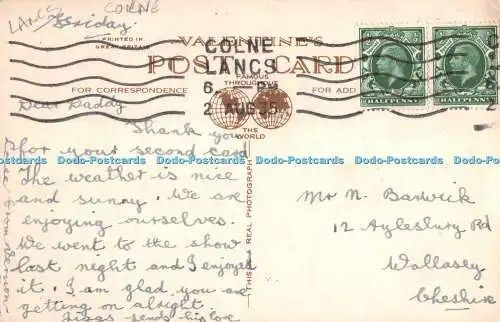 LANCS COLNE
Friday.
PRINTED IN
GREAT BRITAIN
VALENTINE'S
POST CARD
FOR CORRESPONDENCE
FAMOUS
THROUGHOUT
THE
WORLD
FOR ADD
COLNE
LANCS
6.
2 AUG 35
HALFPENNY
HALFPENNY
THIS IS A REAL PHOTOGRAPH
Dear Daddy
Thank you
for your second card
The weather is nice
and sunny. We are
enjoying ourselves.
We went to the show
last night and I enjoyed
it. I am glad you are
getting on alright.
sends his love
Mr N. Barwick
12 Aylesbury Rd
Wallasey
Cheshire
Dodo-Postcards Dodo-Postcards Dodo-Postcards Dodo-Postcards Dodo-Postcards